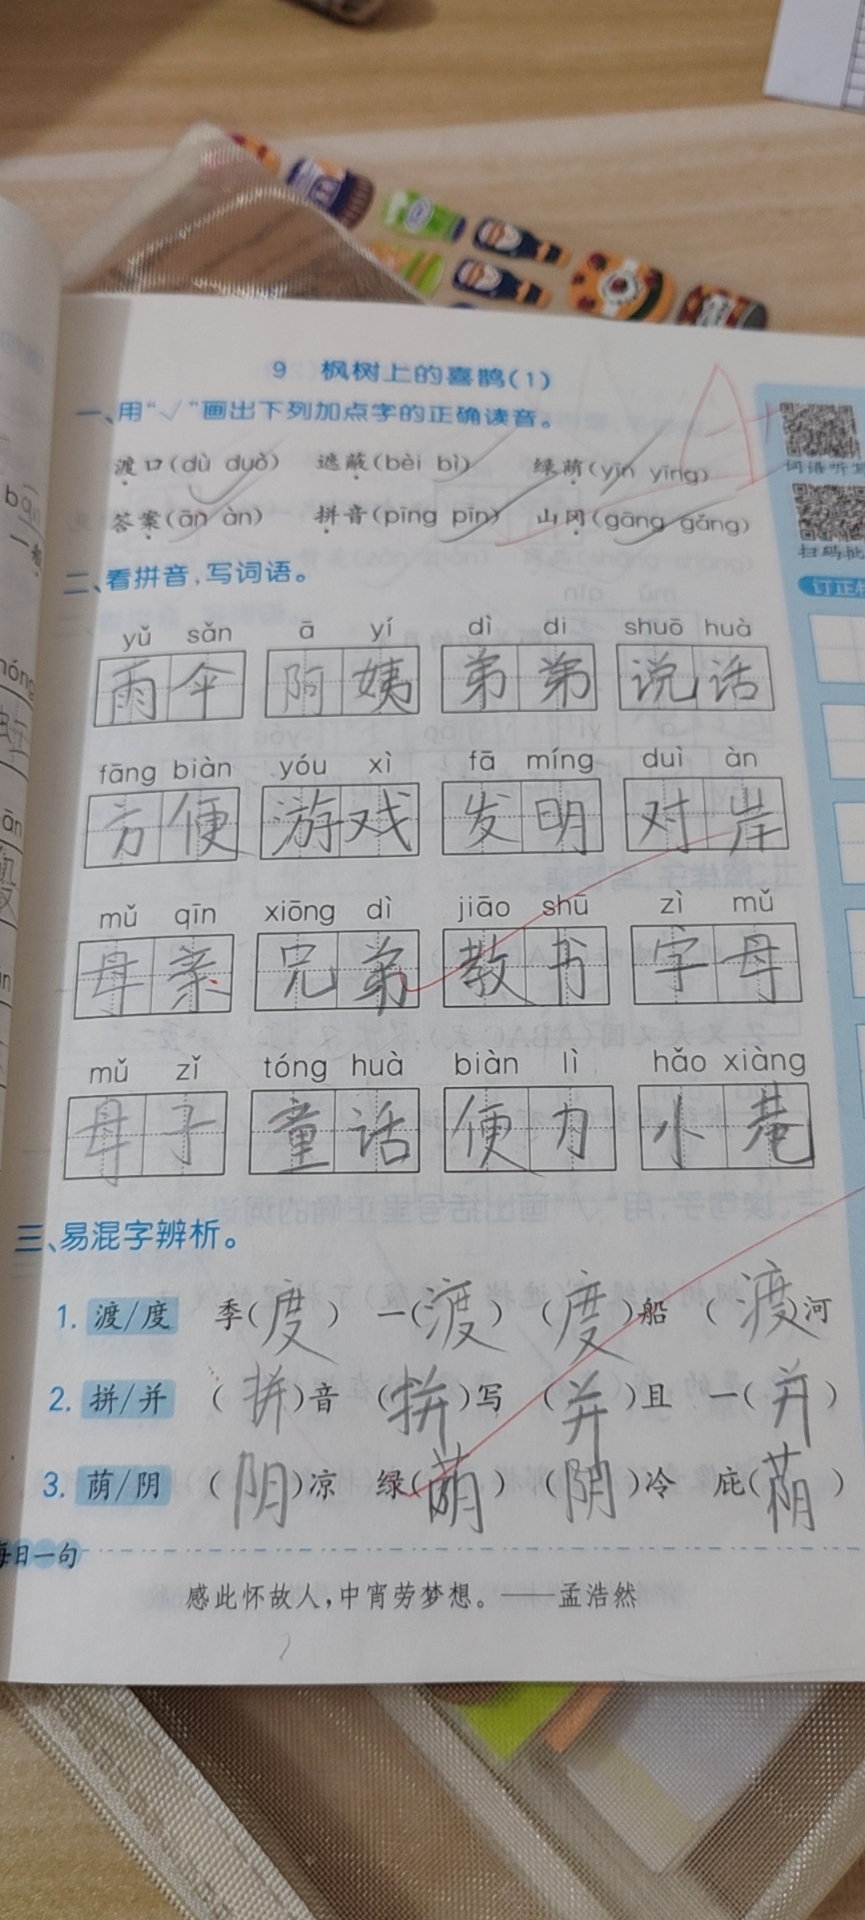 9 枫树上的喜鹊(1)
一、用“√”画出下列加点字的正确读音。
渡口(dù duò) 遮蔽(bèi bì) 绿荫(yīn yīng)
答案(ān àn) 拼音(pīng pīn) 山冈(gāng gǎng)
词语听写
扫码批
订正栏
二、看拼音，写词语。
yǔ sǎn ā yí dì di shuō huà
雨伞 阿姨 弟弟 说话
fāng biàn yóu xì fā míng duì àn
方便 游戏 发明 对岸
mǔ qīn xiōng dì jiāo shū zì mǔ
母亲 兄弟 教书 字母
mǔ zǐ tóng huà biàn lì hǎo xiàng
母子 童话 便力 小
三、易混字辨析。
1. 渡/度 季(度) 一(渡) (度)船 (渡)河
2. 拼/并 (拼)音 (拼)写 (并)且 一(并)
3. 荫/阴 (阴)凉 绿(荫) (阴)冷 庇(荫)
每日一句
感此怀故人，中宵劳梦想。——孟浩然